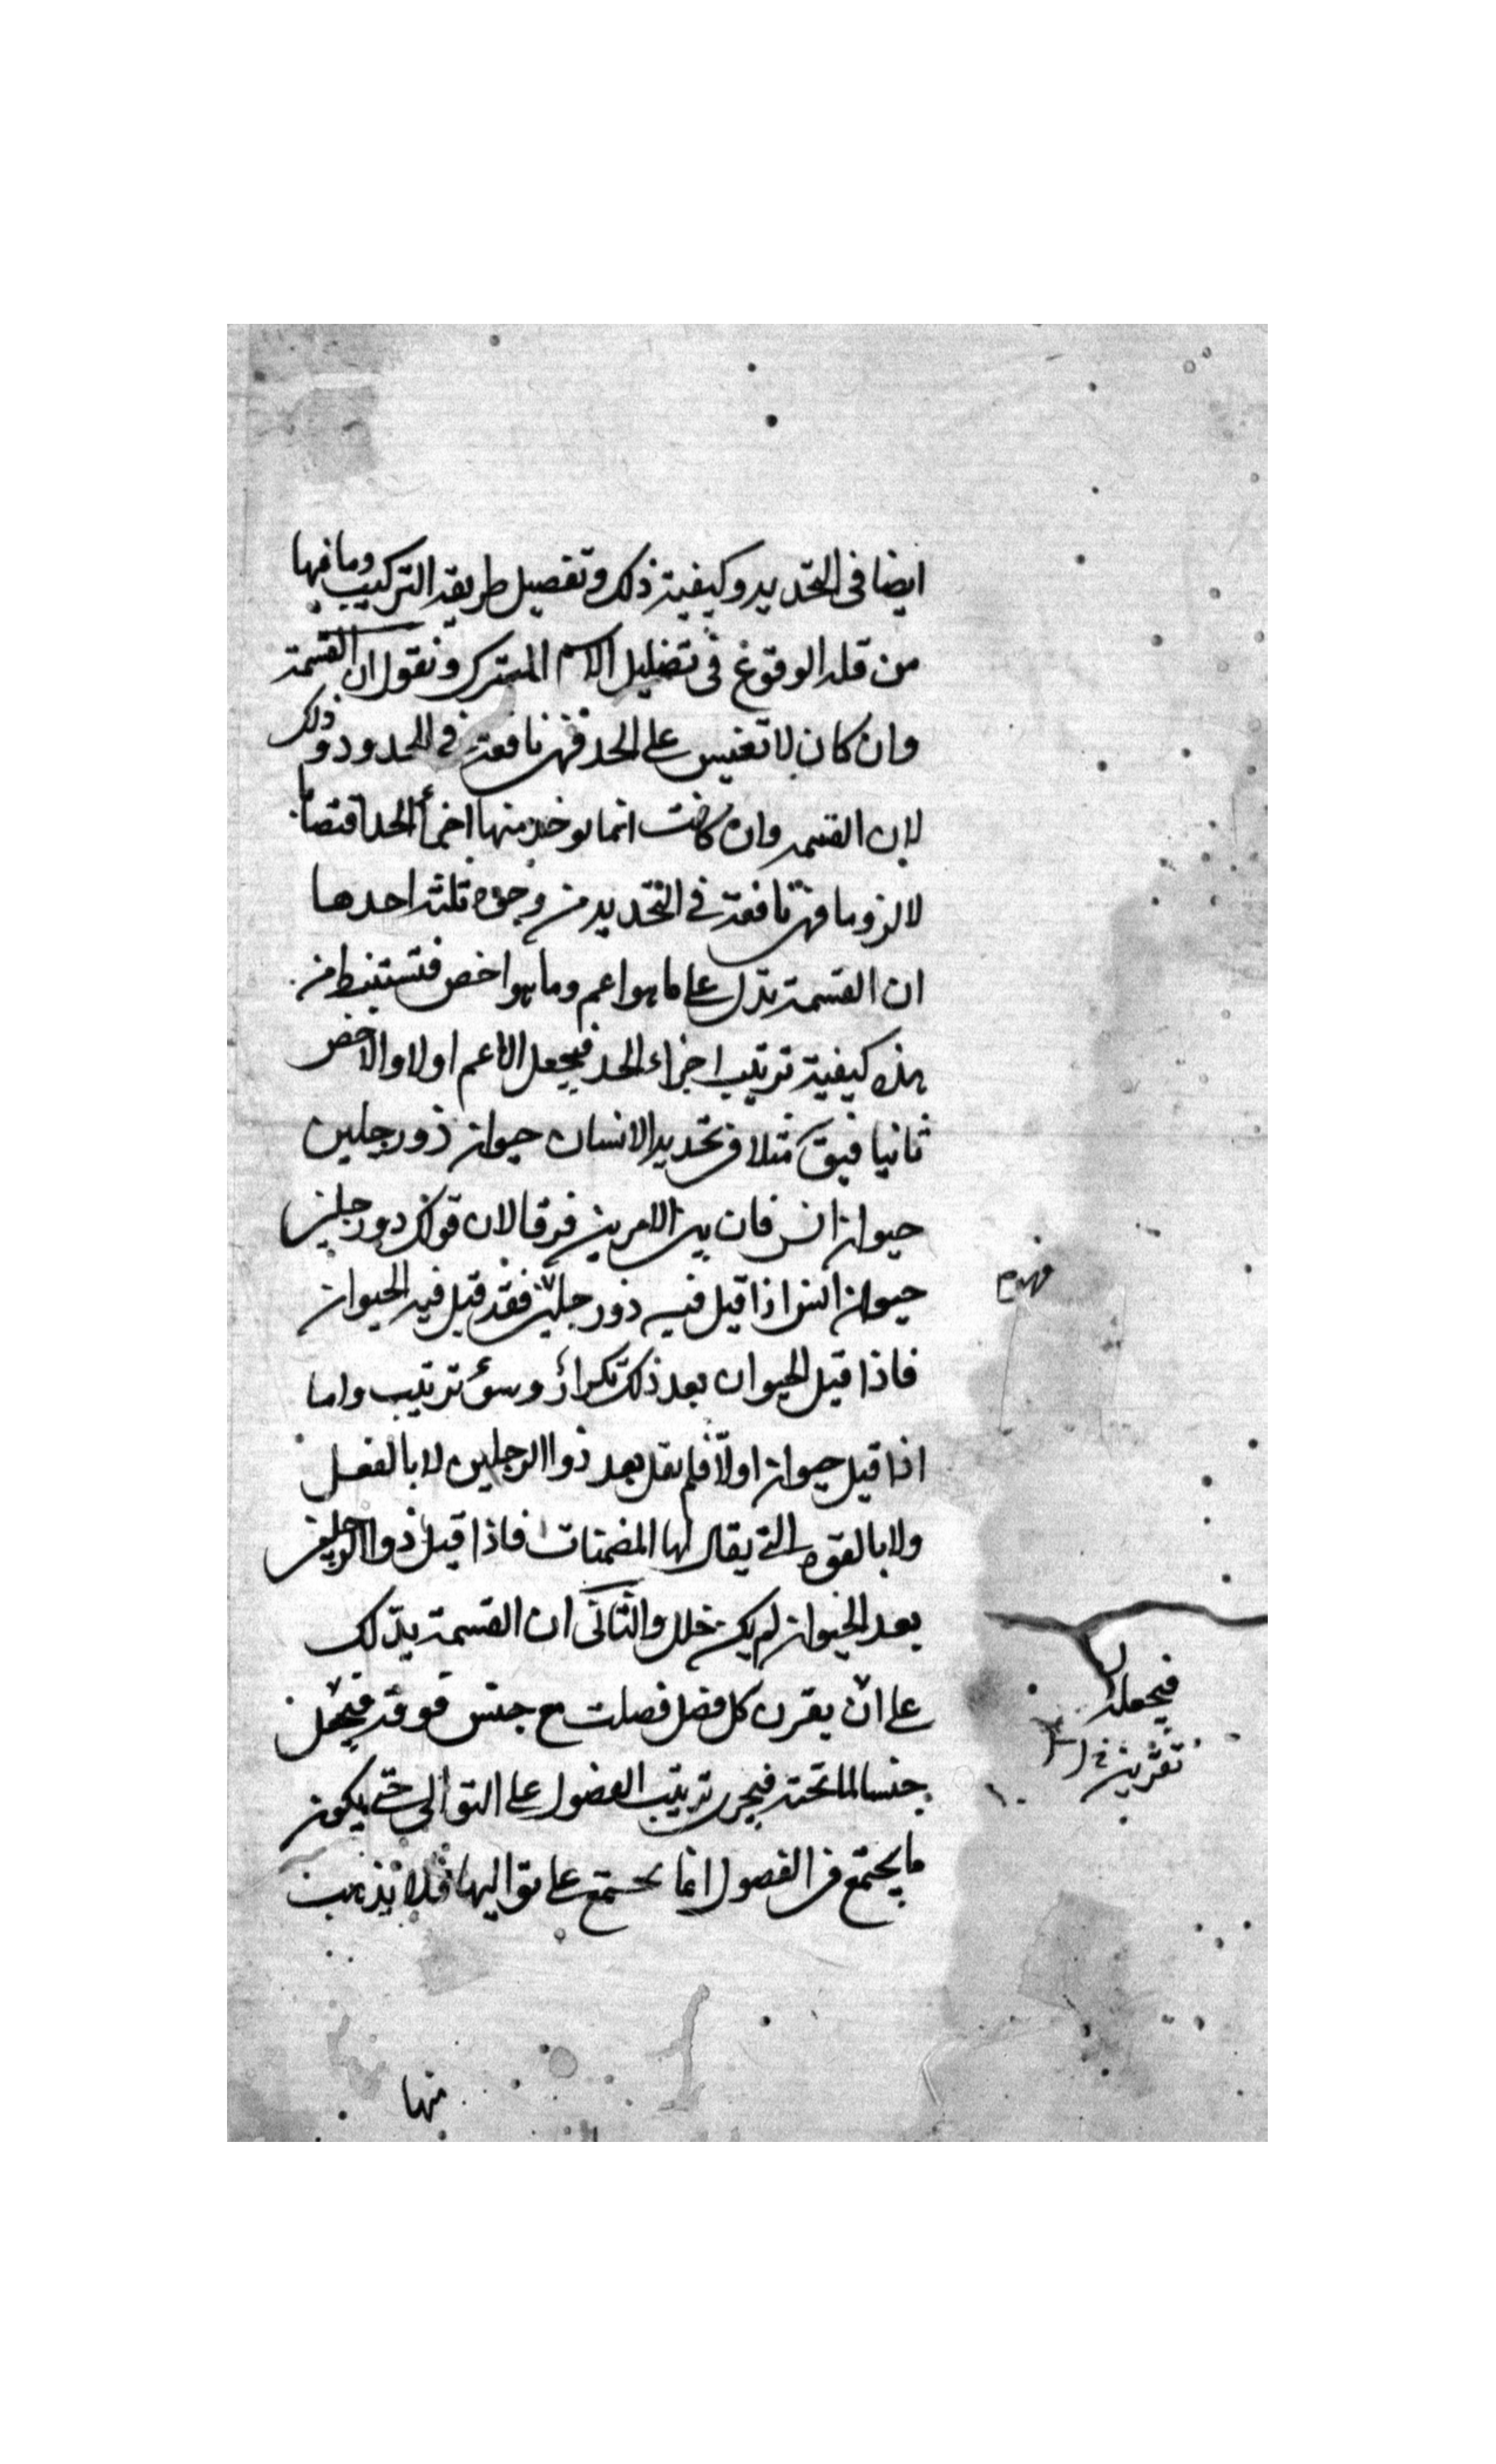 ايضا فى التحديد وكيفية ذلك وتفصيل طريقه التركيب وما فيها
من قله الوقوع فى تضليل الاسم المشترك ونقول ان القسمة
وان كان لا تقيس على الحد فهى نافعة فى الحدود وذلك
لان القسمه وان كانت انما يوخذ منها اجزأ الحد اقتضابا
لا لزوما فهى نافعة فى التحديد من وجوه ثلثه احدها
ان القسمة تدل على ما هو اعم وما هو اخص فتستنبط من
هذه كيفية ترتيب اجزاء الحد فيجعل الاعم اولا والاخص
ثانيا فيق مثلا فى تحديد الانسان حيوان ذو رجلين
حيوان انس فان بين الامرين فرقا لان قولك ذو رجلين
حيوان انس اذا قيل فيه ذو رجلين فقد قيل فيه الحيوان
فاذا قيل الحيوان بعد ذلك تكرارٌ وسؤ ترتيب واما
اذا قيل حيوان اولًا فلم يقل بعد ذوا الرجلين لا بالفعل
ولا بالقوه التى يقال لها المضمنات فاذا قيل ذوا الرجلين
بعد الحيوان لم يكن خلل والثانى ان القسمة يدّلك
على ان يقرن كل فصل فصلت مع جنس فوقه فيجعل
جنسا لما تحته فيجرى ترتيب الفصول على التوالى حتى يكون
ما يجتمع من الفصول انما يجتمع على تواليها فلا يذهب
منها
فيجعله